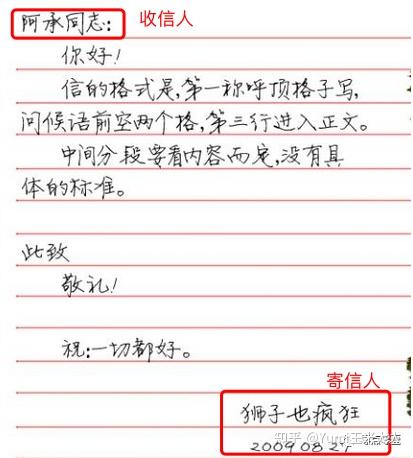 阿承同志: 收信人
你好!
信的格式是,第一称呼顶格子写,
问候语前空两个格,第三行进入正文。
中间分段要看内容而定,没有具
体的标准。
此致
敬礼!
祝:一切都好。
寄信人
狮子也疯狂
知乎 @Yumi王
2009 08 24